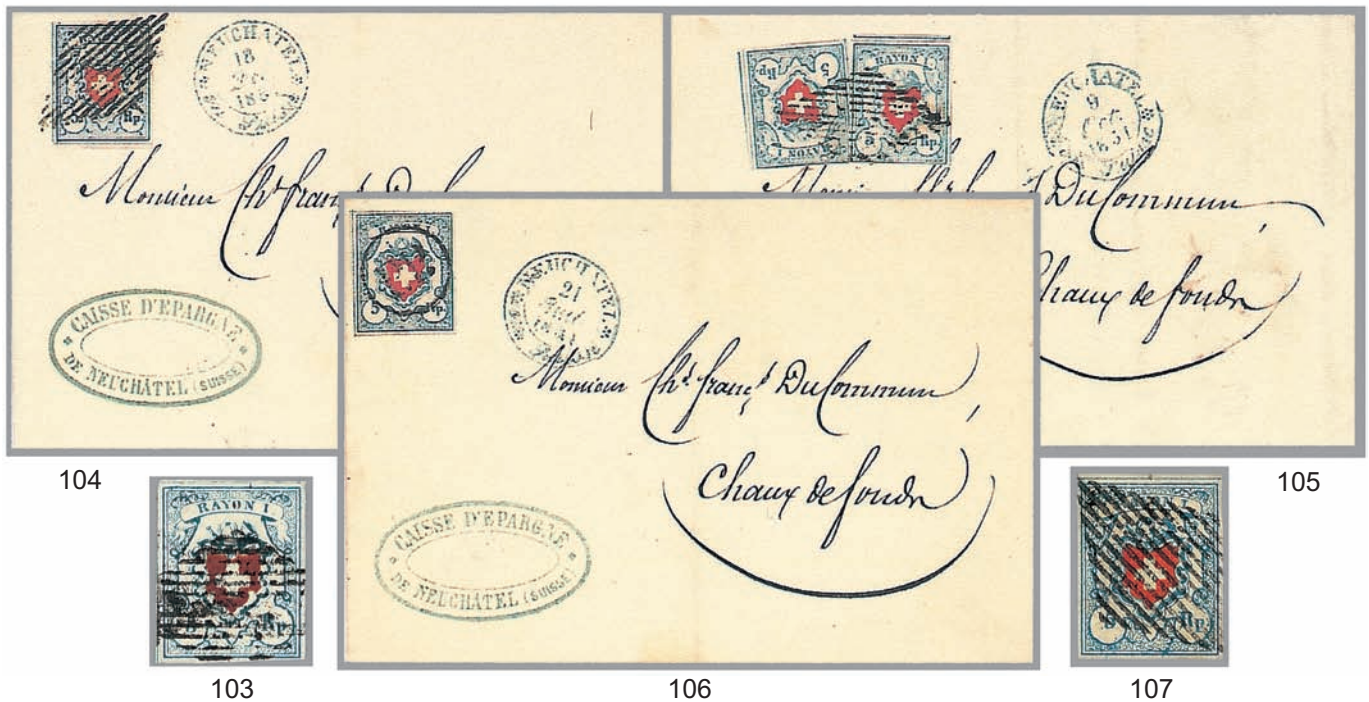 Rp.
NEUCHATEL
18
Monsieur Chs franç
CAISSE D'EPARGNE
DE NEUCHÂTEL (SUISSE)
104
5 Rp.
RAYON I
RAYON I
5 Rp.
NEUCHATEL
9
1851
Suisse
DuCommun
Chaux de fonds
105
RAYON I
5 Rp.
NEUCHATEL
21
Monsieur Chs franç DuCommun,
Chaux de fonds
CAISSE D'EPARGNE
DE NEUCHÂTEL (SUISSE)
106
RAYON I
Rp.
103
Rp.
107